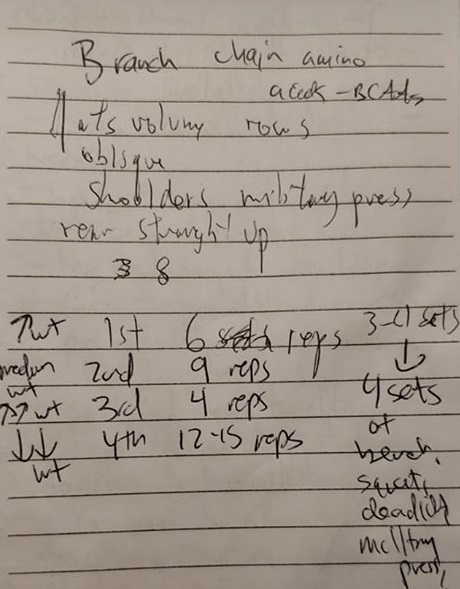 Branch chain amino
acids - BCAAs
lats rows
oblique
shoulders military press
rear straight up
3 8
↑wt 1st 6 reps 3-4 sets
↓
medium wt 2nd 9 reps 4 sets
↑↑ wt 3rd 4 reps of
↓↓ wt 4th 12-15 reps bench,
squat,
deadlift
military
press,